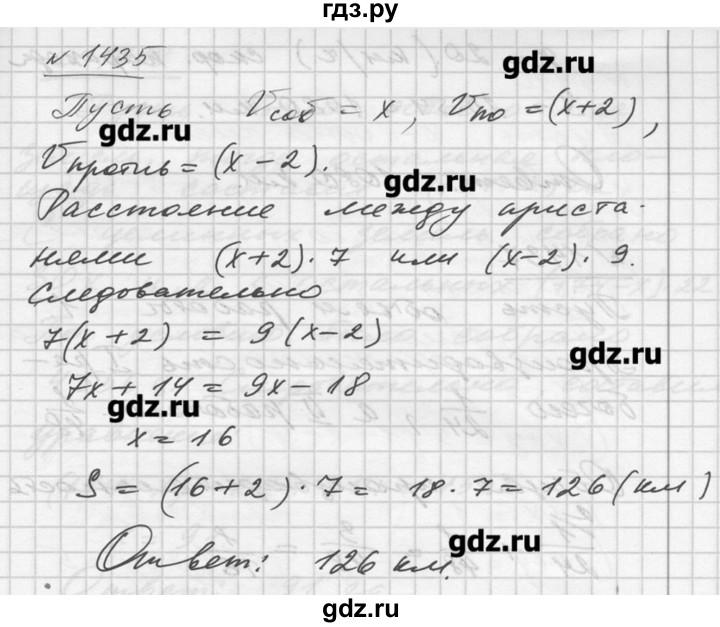 гдз.ру
№ 1435
gdz.ru
Пусть Vсоб = x, Vпо = (x+2),
gdz.ru
Vпротив = (x − 2).
gdz.ru
Расстояние между приста-
нями (x+2) · 7 или (x−2) · 9.
Следовательно
7(x + 2) = 9(x−2)
gdz.ru
7x + 14 = 9x − 18
gdz.ru
x = 16
S = (16+2) · 7 = 18 · 7 = 126 (км)
gdz.ru
Ответ: 126 км.
gdz.ru